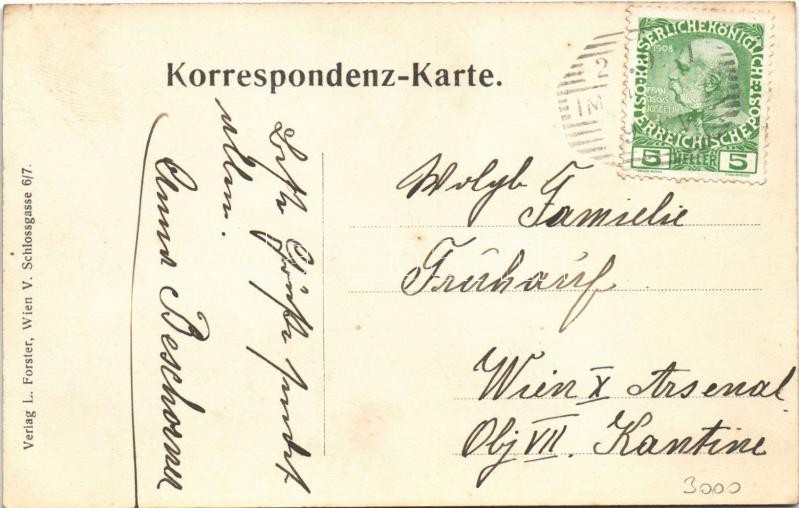 Korrespondenz-Karte.
Verlag L. Forster, Wien V. Schlossgasse 6/7.
KAISERLICHE KÖNIGLICHE ÖSTERREICHISCHE POST
1908
FRAN
CISCVS
JOSEPHVS
I
5 HELLER 5
2
IM
Beste Grüße sendet
allen.
Anna Beschorner
Wolgb.
Familie
Frühauf
Wien X Arsenal
Obj VII. Kantine
3000